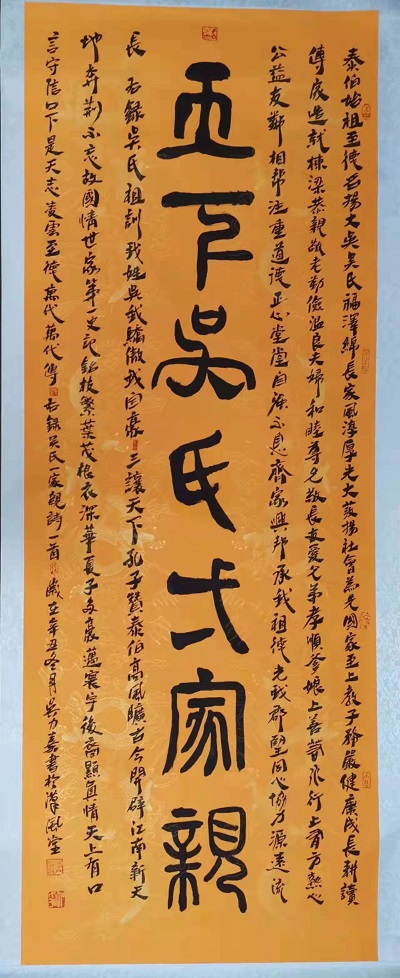 泰伯始祖至德名揚大吳吳氏福澤綿長家風淳厚光大發揚社會為先國家至上教子嚴健康成長耕讀
傳家造就棟梁恭親敬老勤儉溫良夫婦和睦尊兄敬長友愛兄弟孝順爹娘上善若水行之有方熱心
公益友鄰相幫注重道德正心堂堂自強不息齊家興邦承我祖德光我郡望同心協力源遠流
天下吳氏弌家親
長 右錄吳氏祖訓我姓吳我驕傲我自豪 三讓天下孔子贊泰伯高風曠古今開辟江南新天
地奔荊不忘故國情世家第一史記銘枝繁葉茂根深華夏子豪邁寰宇後裔顯真情天上有口
言守信口下是天志凌雲至德萬代萬代傳 右錄吳氏一家親詩一首 歲在辛丑冬月吳書於漢風堂